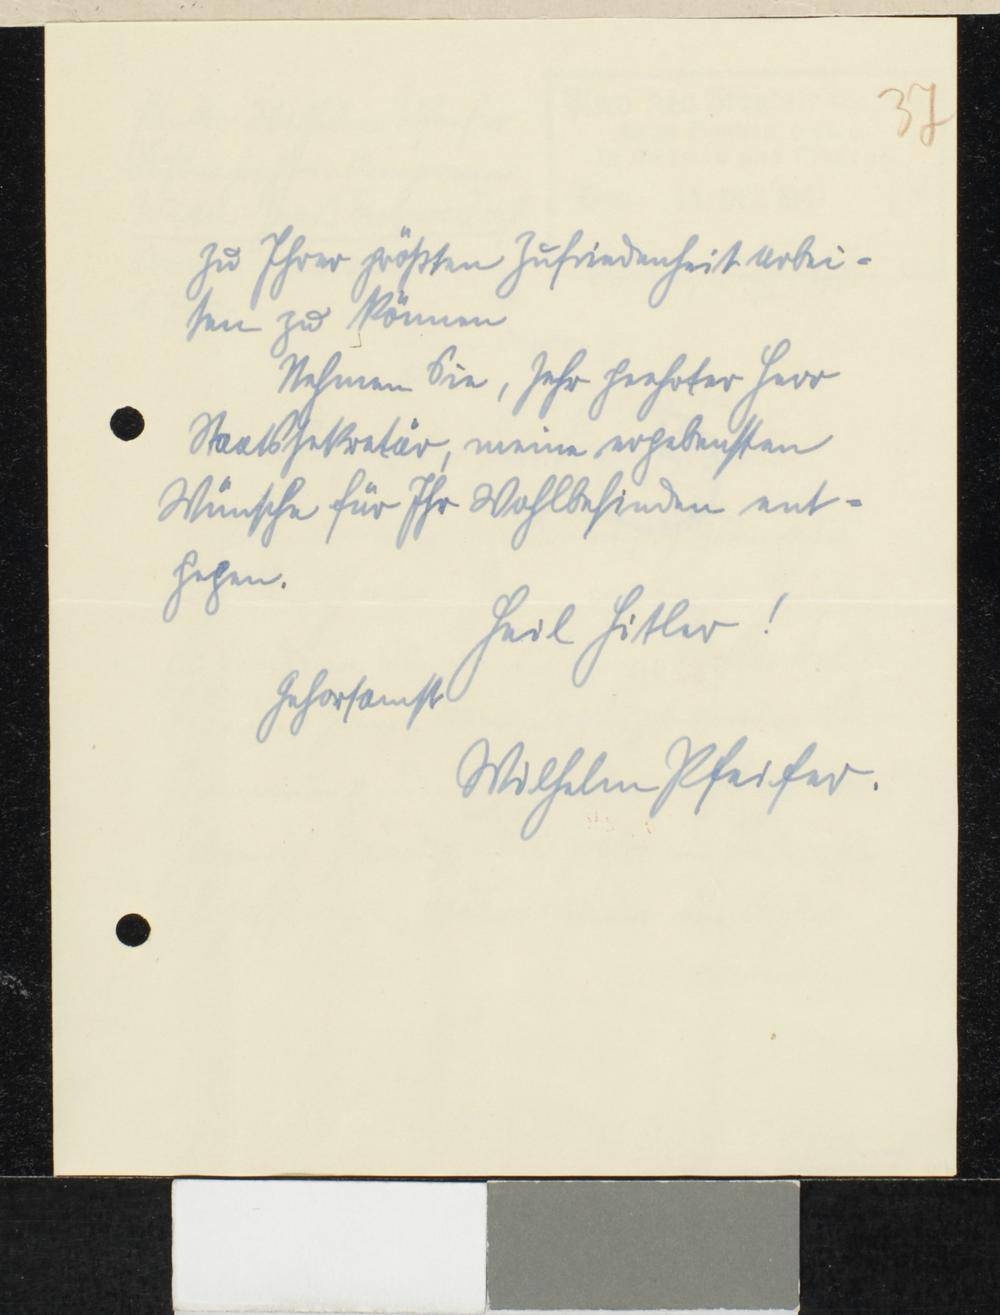 37
zu Ihrer größten Zufriedenheit arbei-
ten zu können
Nehmen Sie, sehr geehrter Herr
Staatssekretär, meine ergebensten
Wünsche für Ihr Wohlbefinden ent-
gegen.
Heil Hitler!
Gehorsamst
Wilhelm Pfeifer.